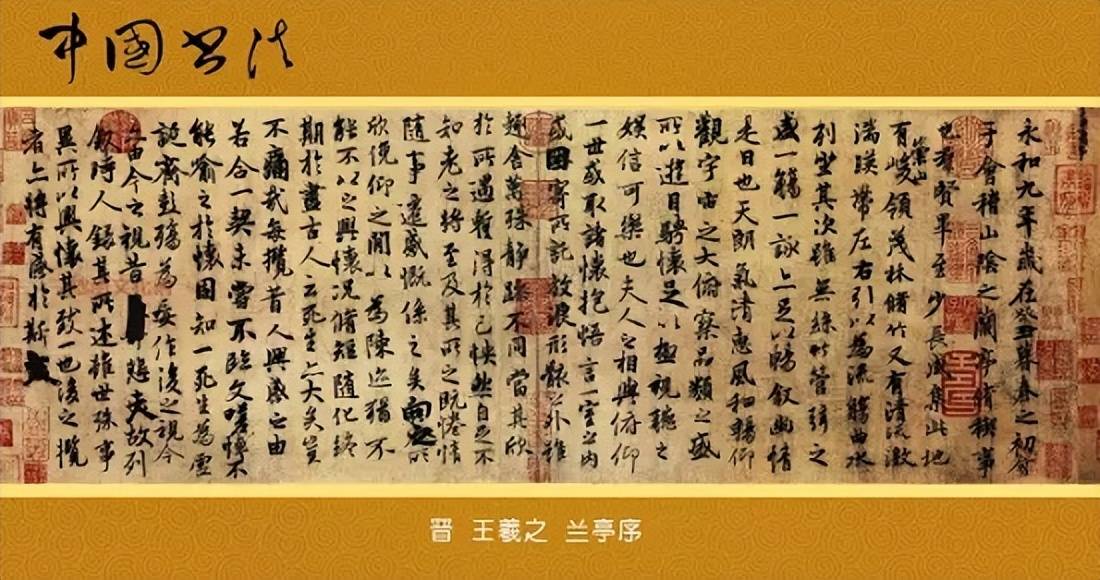 中国书法
永和九年歲在癸丑暮春之初會
于會稽山陰之蘭亭脩稧事
也羣賢畢至少長咸集此地
有崇山峻領茂林脩竹又有清流激
湍暎帶左右引以為流觴曲水
列坐其次雖無絲竹管弦之
盛一觴一詠亦足以暢敘幽情
是日也天朗氣清惠風和暢仰
觀宇宙之大俯察品類之盛
所以遊目騁懷足以極視聽之
娛信可樂也夫人之相與俯仰
一世或取諸懷抱悟言一室之內
或因寄所託放浪形骸之外雖
趣舍萬殊靜躁不同當其欣
於所遇蹔得於己怏然自足不
知老之將至及其所之既惓情
隨事遷感慨係之矣向之所
欣俛仰之閒以為陳迹猶不
能不以之興懷況脩短隨化終
期於盡古人云死生亦大矣豈
不痛哉每攬昔人興感之由
若合一契未嘗不臨文嗟悼不
能喻之於懷固知一死生為虛
誕齊彭殤為妄作後之視今
亦由今之視昔悲夫故列
敘時人錄其所述雖世殊事
異所以興懷其致一也後之攬
者亦將有感於斯文
晋 王羲之 兰亭序